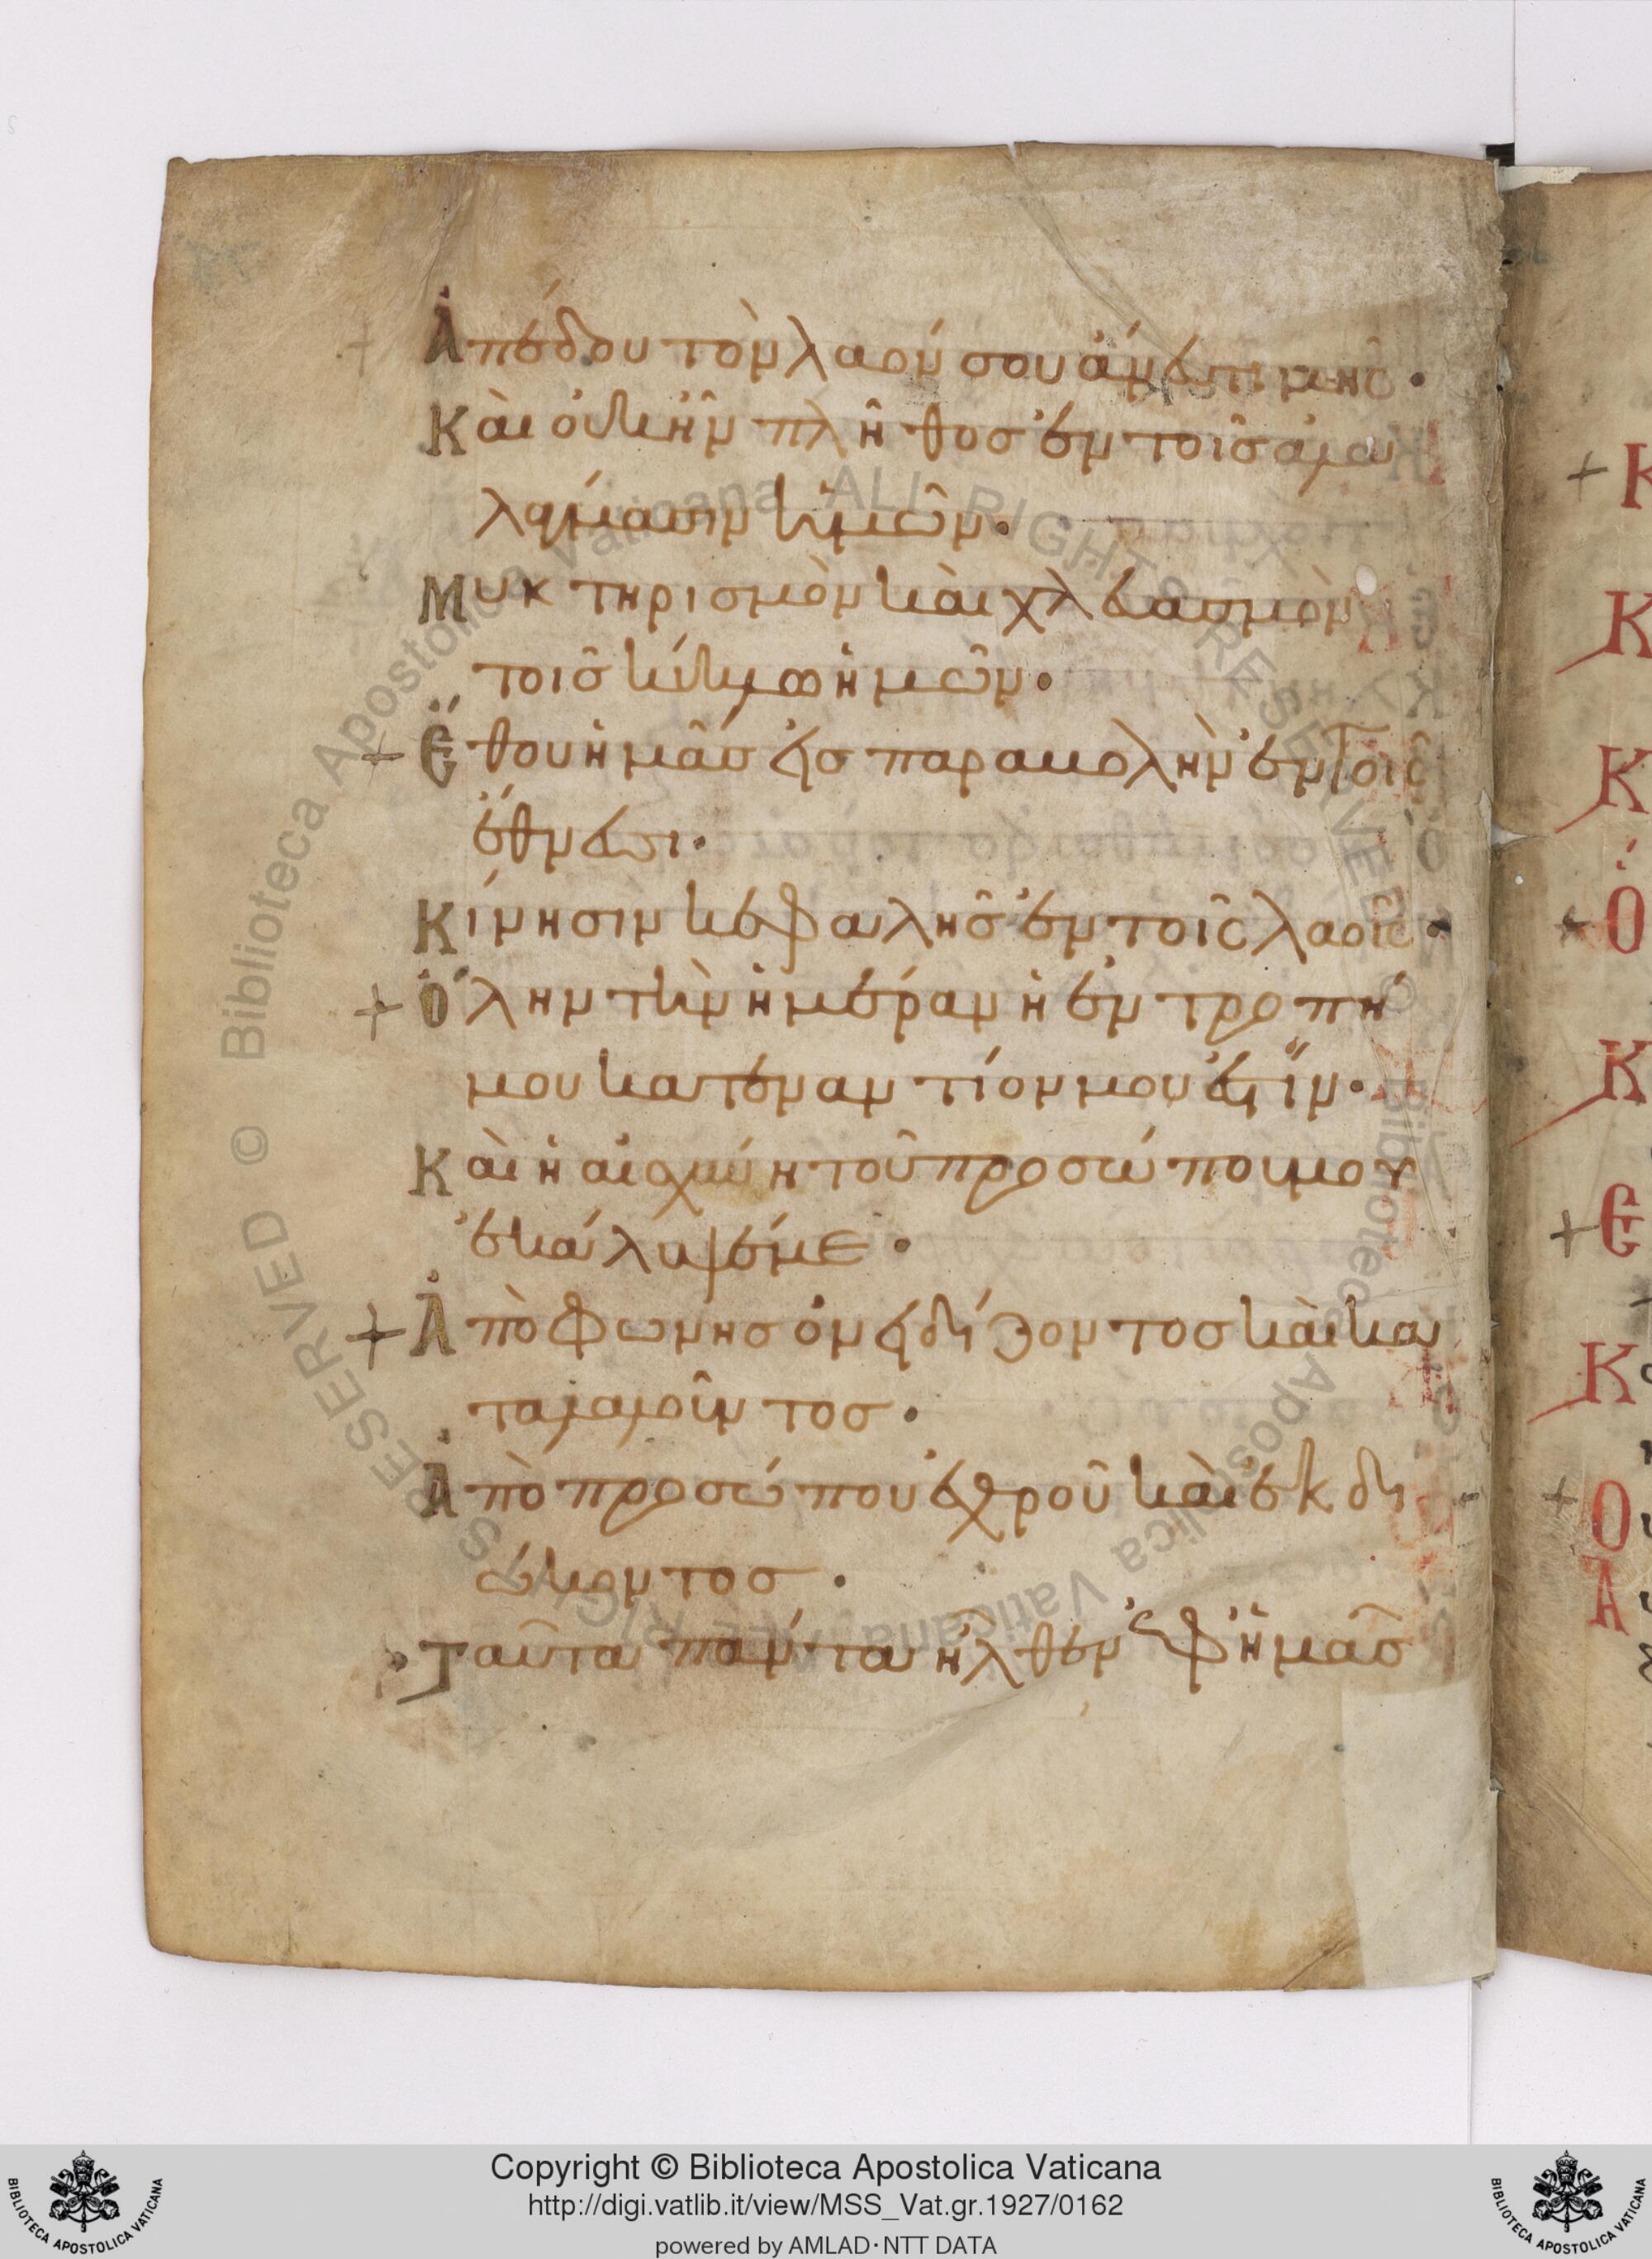 Ἀπόδου τὸν λαόν σου ἄνευ τιμῆς·
Καὶ οὐκ ἦν πλῆθος ἐν τοῖς ἀλα
λάγμασιν ἡμῶν·
Μυκτηρισμὸν καὶ χλευασμὸν
τοῖς κύκλῳ ἡμῶν·
+ Ἔθου ἡμᾶς εἰς παραβολὴν ἐν τοῖς
ἔθνεσι·
Κίνησιν κεφαλῆς ἐν τοῖς λαοῖς·
+ Ὅλην τὴν ἡμέραν ἡ ἐντροπή
μου κατεναντίον μου ἐστίν·
Καὶ ἡ αἰσχύνη τοῦ προσώπου μου
ἐκάλυψέ με·
+ Ἀπὸ φωνῆς ὀνειδίζοντος καὶ κα
ταλαλοῦντος·
Ἀπὸ προσώπου ἐχθροῦ καὶ ἐκδι
ώκοντος·
Ταῦτα πάντα ἦλθεν ἐφ ἡμᾶς
Copyright © Biblioteca Apostolica Vaticana
http://digi.vatlib.it/view/MSS_Vat.gr.1927/0162
powered by AMLAD·NTT DATA